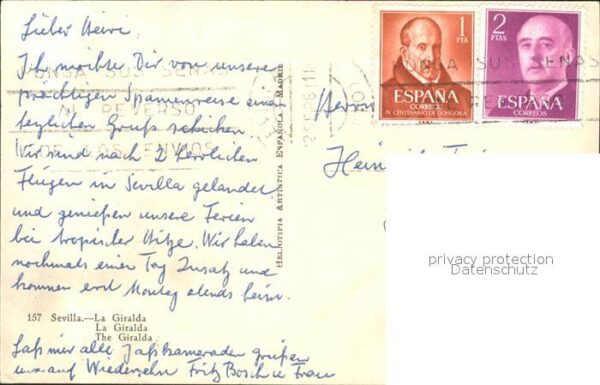 Lieber Heiri,
Ich möchte Dir von unserer
prächtigen Spanienreise einen
herzlichen Gruß schicken.
Wir sind nach 2 herrlichen
Flügen in Sevilla gelandet
und genießen unsere Ferien
bei tropischer Hitze. Wir haben
nochmals einen Tag Zusatz und
kommen erst Montag abends heim.
157 Sevilla.—La Giralda
La Giralda
The Giralda
Laß mir alle Jaßkameraden grüßen
und auf Wiedersehn Fritz Bosch u Frau
PONGA SUS SEÑAS
AL REVERSO
DE LOS ENVIOS
HELIOTIPIA ARTISTICA ESPAÑOLA - MADRID
1
PTA
ESPAÑA
CORREOS
IV CENTENARIO DE GONGORA
2
PTAS
ESPAÑA
CORREOS
PONGA SUS SEÑAS
Herrn
privacy protection
Datenschutz